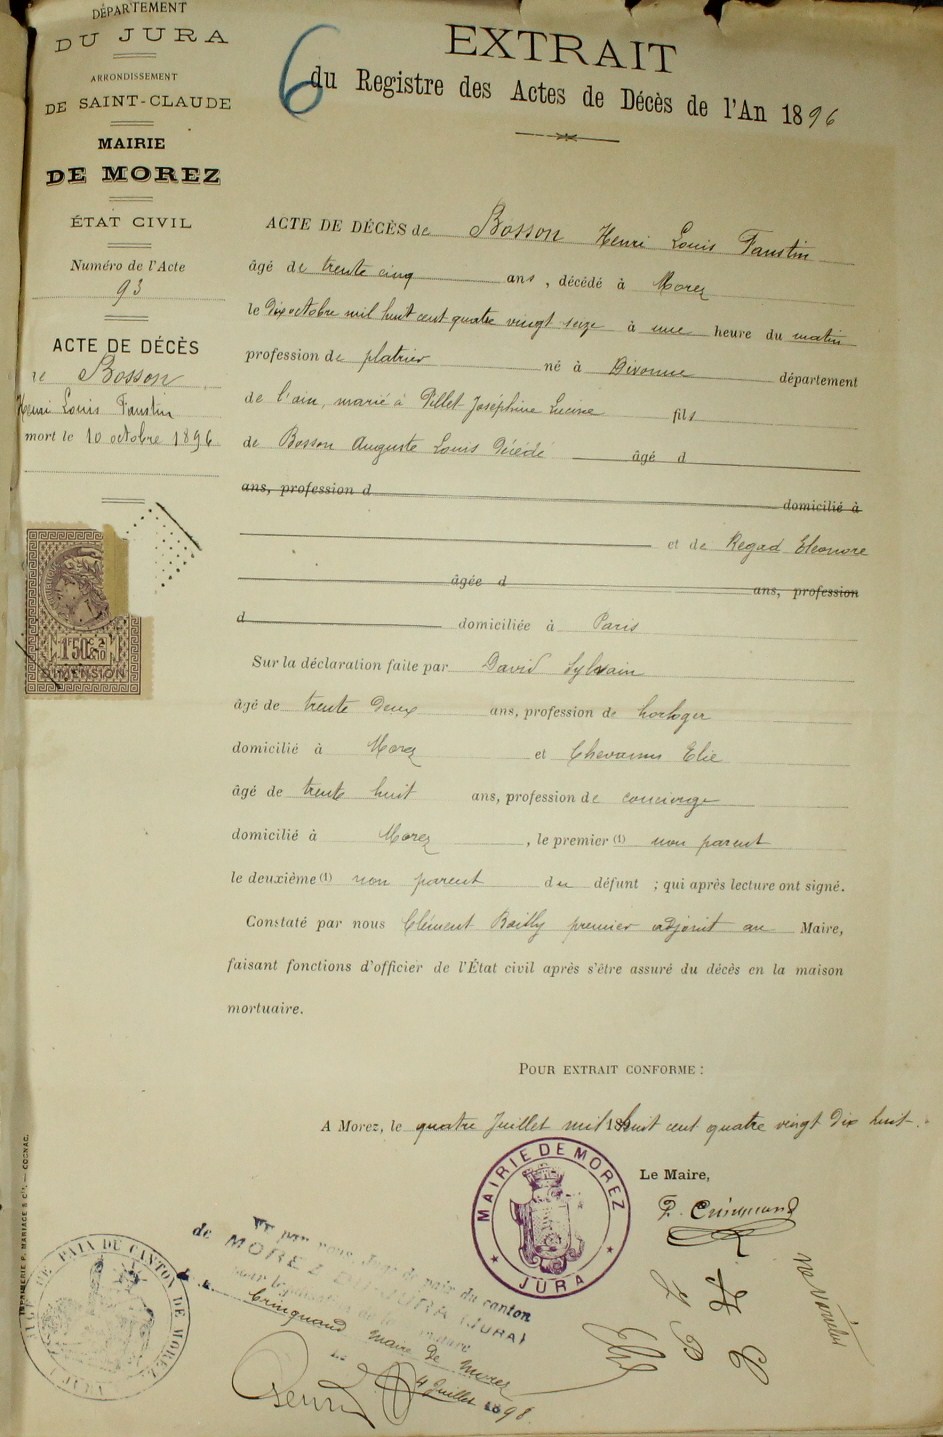 DÉPARTEMENT
DU JURA
ARRONDISSEMENT
DE SAINT-CLAUDE
MAIRIE
DE MOREZ
ÉTAT CIVIL
Numéro de l'Acte
93
ACTE DE DÉCÈS
de Bosson
Henri Louis Faustin
mort le 10 octobre 1896
1F50c
DIMENSION
6
EXTRAIT
du Registre des Actes de Décès de l'An 1896
ACTE DE DÉCÈS de Bosson Henri Louis Faustin
âgé de trente cinq ans, décédé à Morez
le Dix octobre mil huit cent quatre vingt seize à une heure du matin
profession de platrier né à Divonne département
de l'ain, marié à Pillet Joséphine Lucine fils
de Bosson Auguste Louis Décédé âgé d
ans, profession d domicilié à
et de Regad Eléonore
âgée d ans, profession
d domiciliée à Paris
Sur la déclaration faite par David Sylvain
âgé de trente Deux ans, profession de horloger
domicilié à Morez et Chevassus Elie
âgé de trente huit ans, profession de concierge
domicilié à Morez, le premier (1) non parent
le deuxième (1) non parent du défunt ; qui après lecture ont signé.
Constaté par nous Clément Bailly premier adjoint au Maire,
faisant fonctions d'officier de l'État civil après s'être assuré du décès en la maison
mortuaire.
POUR EXTRAIT CONFORME :
A Morez, le quatre Juillet mil 189 huit cent quatre vingt Dix huit.
Le Maire,
MAIRIE DE MOREZ
JURA
Vu par nous Juge de paix du canton
de MOREZ-DU-JURA (JURA)
pour légalisation de la signature
de M. Cuinquand Maire De Morez
le 4 Juillet 1898
JUGE DE PAIX DU CANTON DE MOREZ
IMPRIMERIE F. MARIAGE & Cie. — COGNAC.